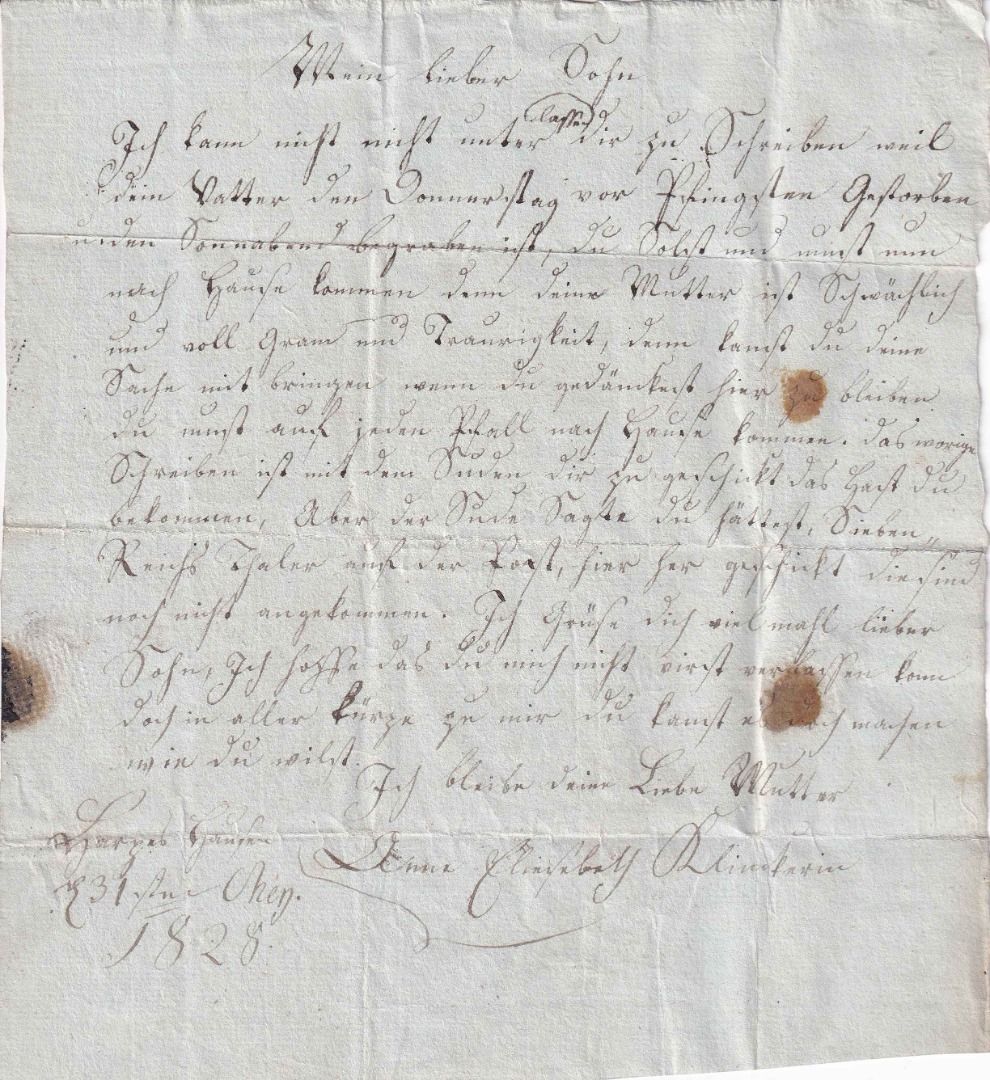 Mein lieber Sohn
lassen
Ich kann nicht nicht unter dir zu Schreiben weil
dein Vatter den Donnerstag vor Pfingsten Gestorben
u den Sonnabend begraben ist, du Solst und must nun
nach Hause kommen denn deine Mutter ist Schwächlich
und voll Gram und Traurigkeit, denn kanst du deine
Sache mit bringen wenn du gedänckest hier zu bleiben
du must auf jeden Pfall nach Hause kommen. das worige
Schreiben ist mit dem Juden dir zu geschickt das hast du
bekommen, Aber der Jude Sagte du hättest, Sieben
Reichs Thaler auf der Post, hier her geschickt die sind
noch nicht angekommen. Ich Grüse dich viel mahl lieber
Sohn, Ich hoffe das du mich nicht wirst verlassen kom
doch in aller kürze zu mir du kanst es doch machen
wie du wilst.
Ich bleibe deine Liebe Mutter
Hausen
Anne Eliesebeth Klinckerin
d 31 sten Mey.
1828.